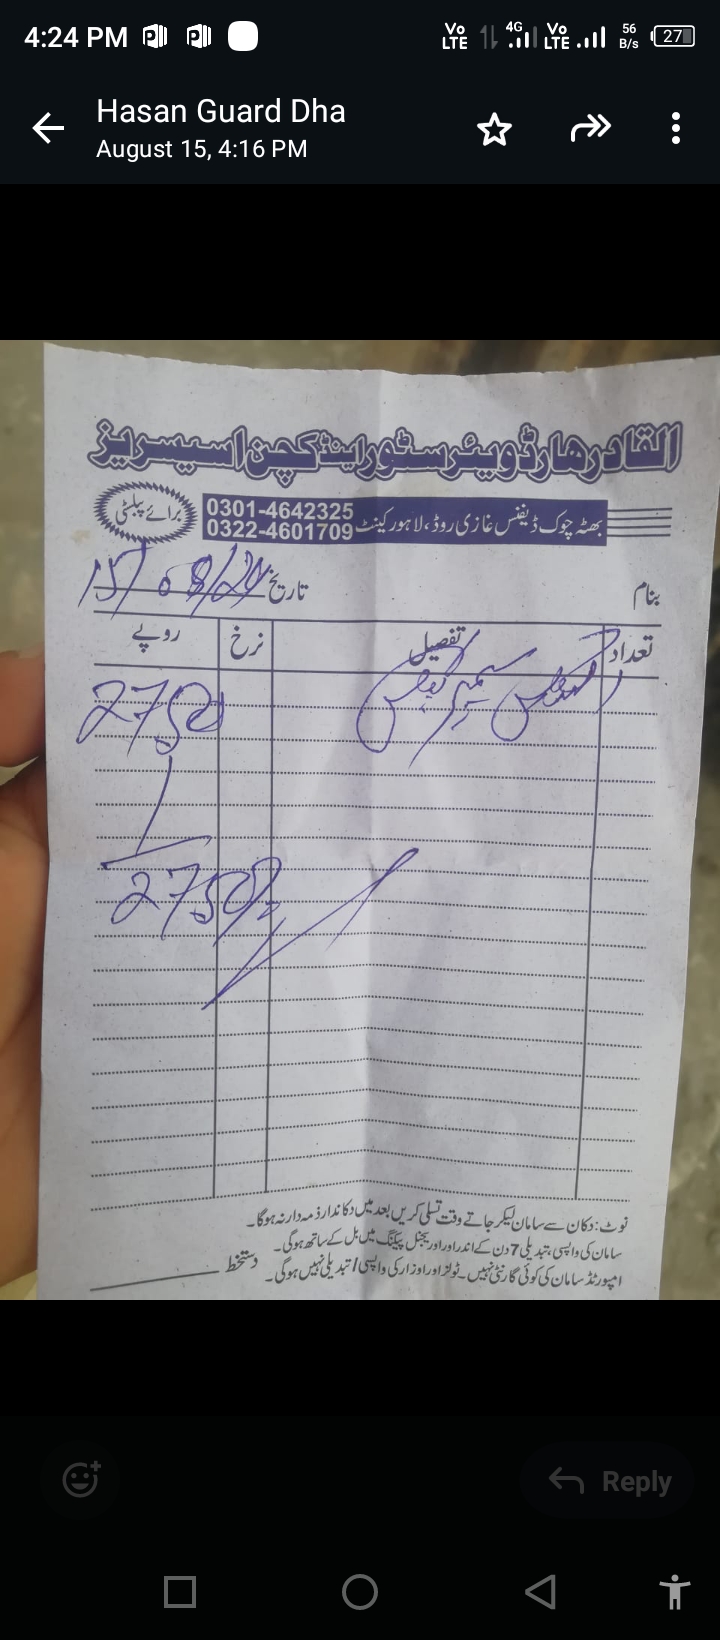 4:24 PM
Vo LTE 4G Vo LTE 56 B/s 27
Hasan Guard Dha
August 15, 4:16 PM
القادر ہارڈویئر سٹور اینڈ کچن اسیسریز
برائے پبلسٹی
0301-4642325
0322-4601709
بھٹہ چوک ڈیفنس غازی روڈ، لاہور کینٹ
بنام
تاریخ 15/08/24
تعداد تفصیل نرخ روپے
2750
2750/=
نوٹ: دکان سے سامان لیکر جاتے وقت تسلی کریں بعد میں دکاندار ذمہ دار نہ ہوگا۔
سامان کی واپسی، تبدیلی 7 دن کے اندر اور اوریجنل پیکنگ میں بل کے ساتھ ہوگی۔
امپورٹڈ سامان کی کوئی گارنٹی نہیں۔ ٹولز اور اوزار کی واپسی / تبدیلی نہیں ہوگی۔
دستخط
Reply